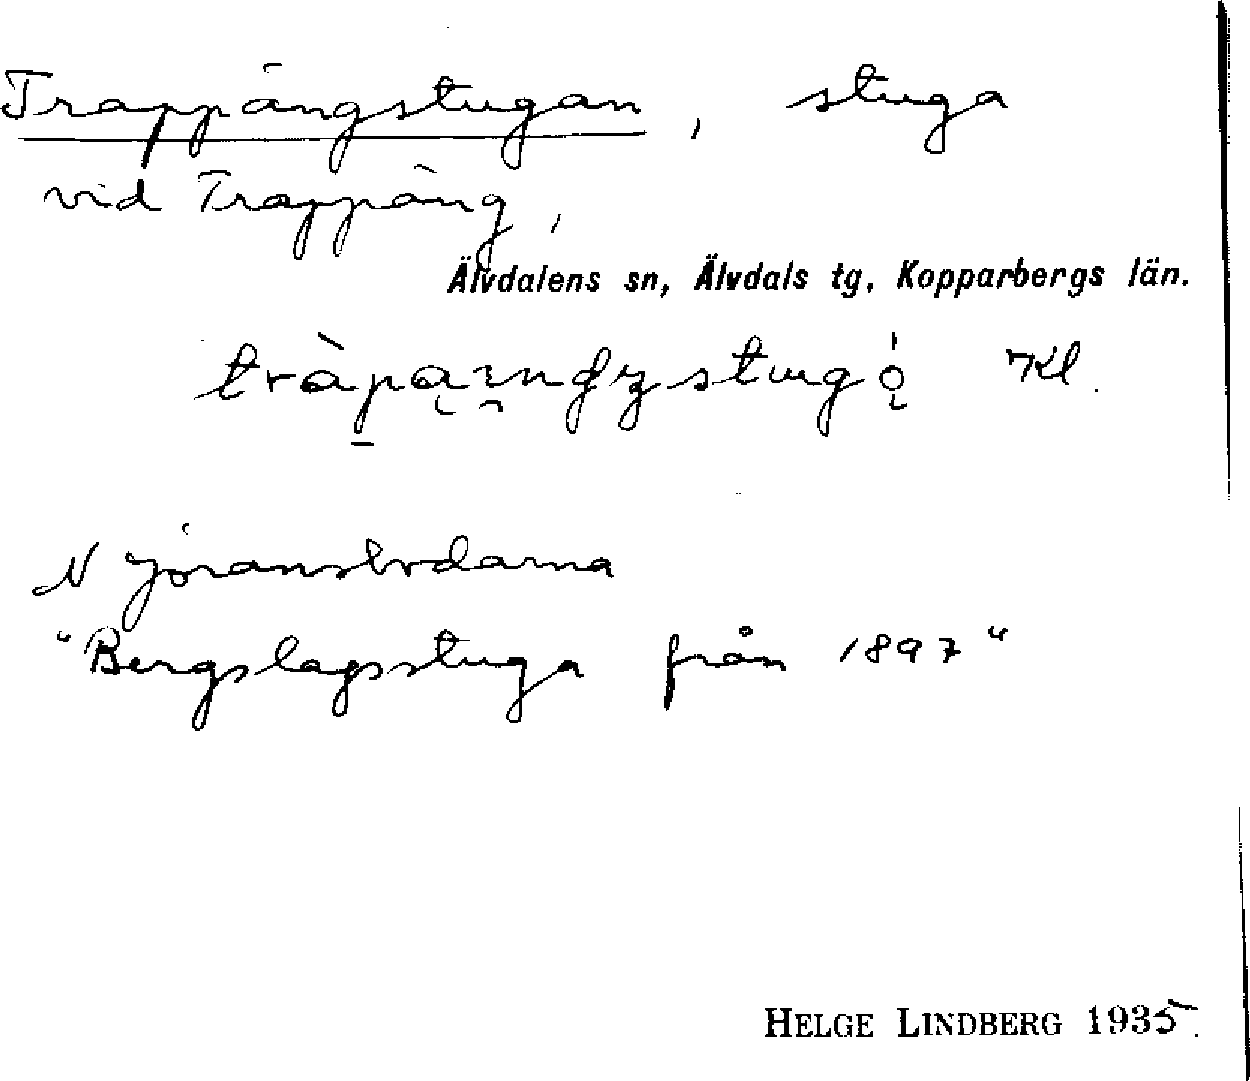 Trappängstugan, stuga
vid Trappäng,
Älvdalens sn, Älvdals tg, Kopparbergs län.
Kl.
N Jöransbodarna
"Bergslagsstuga från 1897"
HELGE LINDBERG 1935.